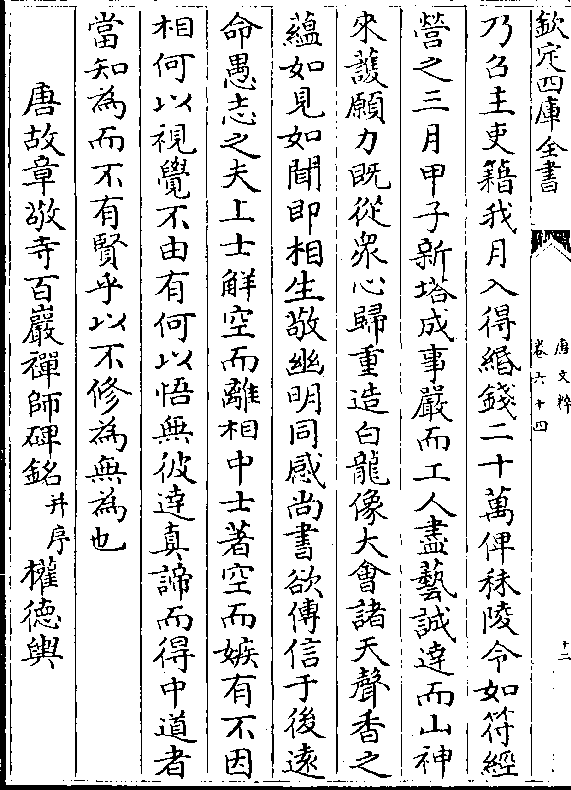 欽定四庫全書
唐文粹
卷六十四
十二
乃召主吏籍我月入得緡錢二十萬俾秣陵令如符經
營之三月甲子新塔成事嚴而工人盡藝誠達而山神
來䕶願力既從衆心歸重造白龍像大會諸天聲香之
蘊如見如聞即相生敬幽明同感尚書欲傳信于後逺
命愚志之夫上士解空而離相中士著空而嫉有不因
相何以視覺不由有何以悟無彼達真諦而得中道者
當知為而不有賢乎以不修為無為也
唐故章敬寺百巖禪師碑銘并序 權德輿